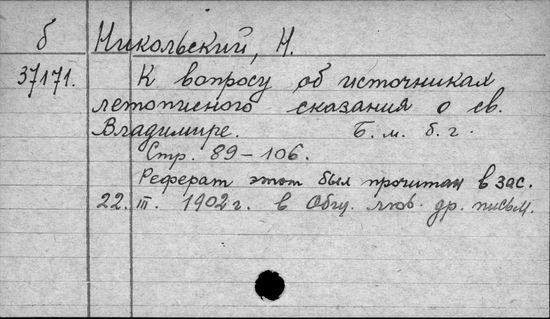 б Никольский, Н.
37171. К вопросу об источниках
летописного сказания о св.
Владимире. Б. м. б. г.
Стр. 89-106.
Реферат этот был прочитан в зас.
22. III. 1902 г. в Общ. люб. др. письм.